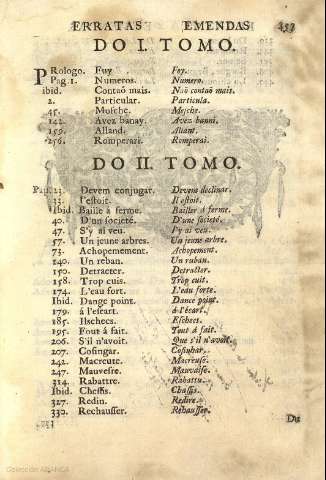 ERRATAS EMENDAS
DO I. TOMO.
Prologo. Fuy Foy.
Pag 1. Numeros. Numero.
ibid. Contaõ mais. Naõ contaõ mais.
2. Particular. Particula.
45. Mosche. Mosche.
142. Avez banay. Avez banni.
159. Alland. Allant.
256. Romperari. Romperai.
DO II. TOMO.
Pag. 23. Devem conjugar. Devem declinar.
33. I'estoit. Il estoit.
Ibid. Baille á ferme. Bailler á ferme.
40. D'un societé. D'une societé.
47. S'y ai veu. I'y ai veu.
57. Un jeune arbres. Un jeune arbre.
73. Achopemement. Achopement.
140. Un reban. Un ruban.
150. Detracter. Detracter.
158. Trop cuis. Trop cuit.
174. L'eau fort. L'eau forte.
Ibid. Dange point. Dance point.
179. á l'efcart. á l'écart.
185. Ilschecs. Eschecs.
195. Fout á fait. Tout á fait.
206. S'il n'avoit. Que s'il n'avoit.
207. Cosingar. Cosinhar.
242. Macreute. Macreuse.
247. Mauvesre. Mauvaise.
314. Rabattre. Rabattu.
Ibid. Chessis. Chassis.
327. Redin. Redire.
330. Rechausser. Rehausser.
Du
Colección ABANCA